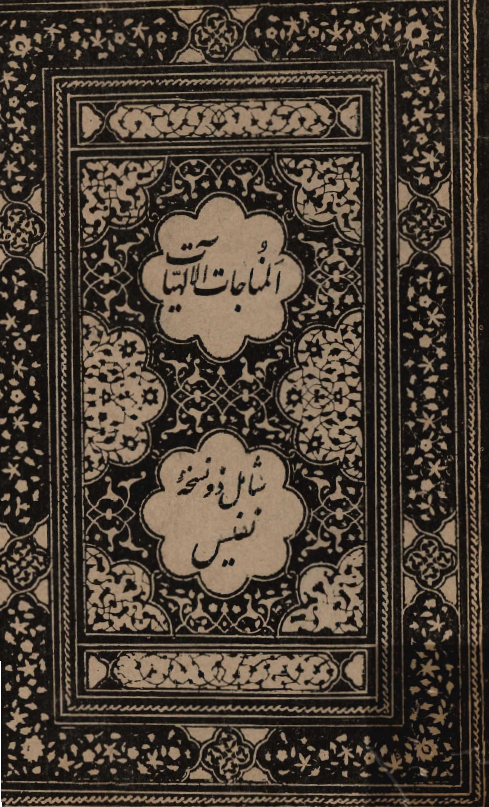 اَلمُناجات الالهیّات
شامل دو نسخهٔ
نفیس